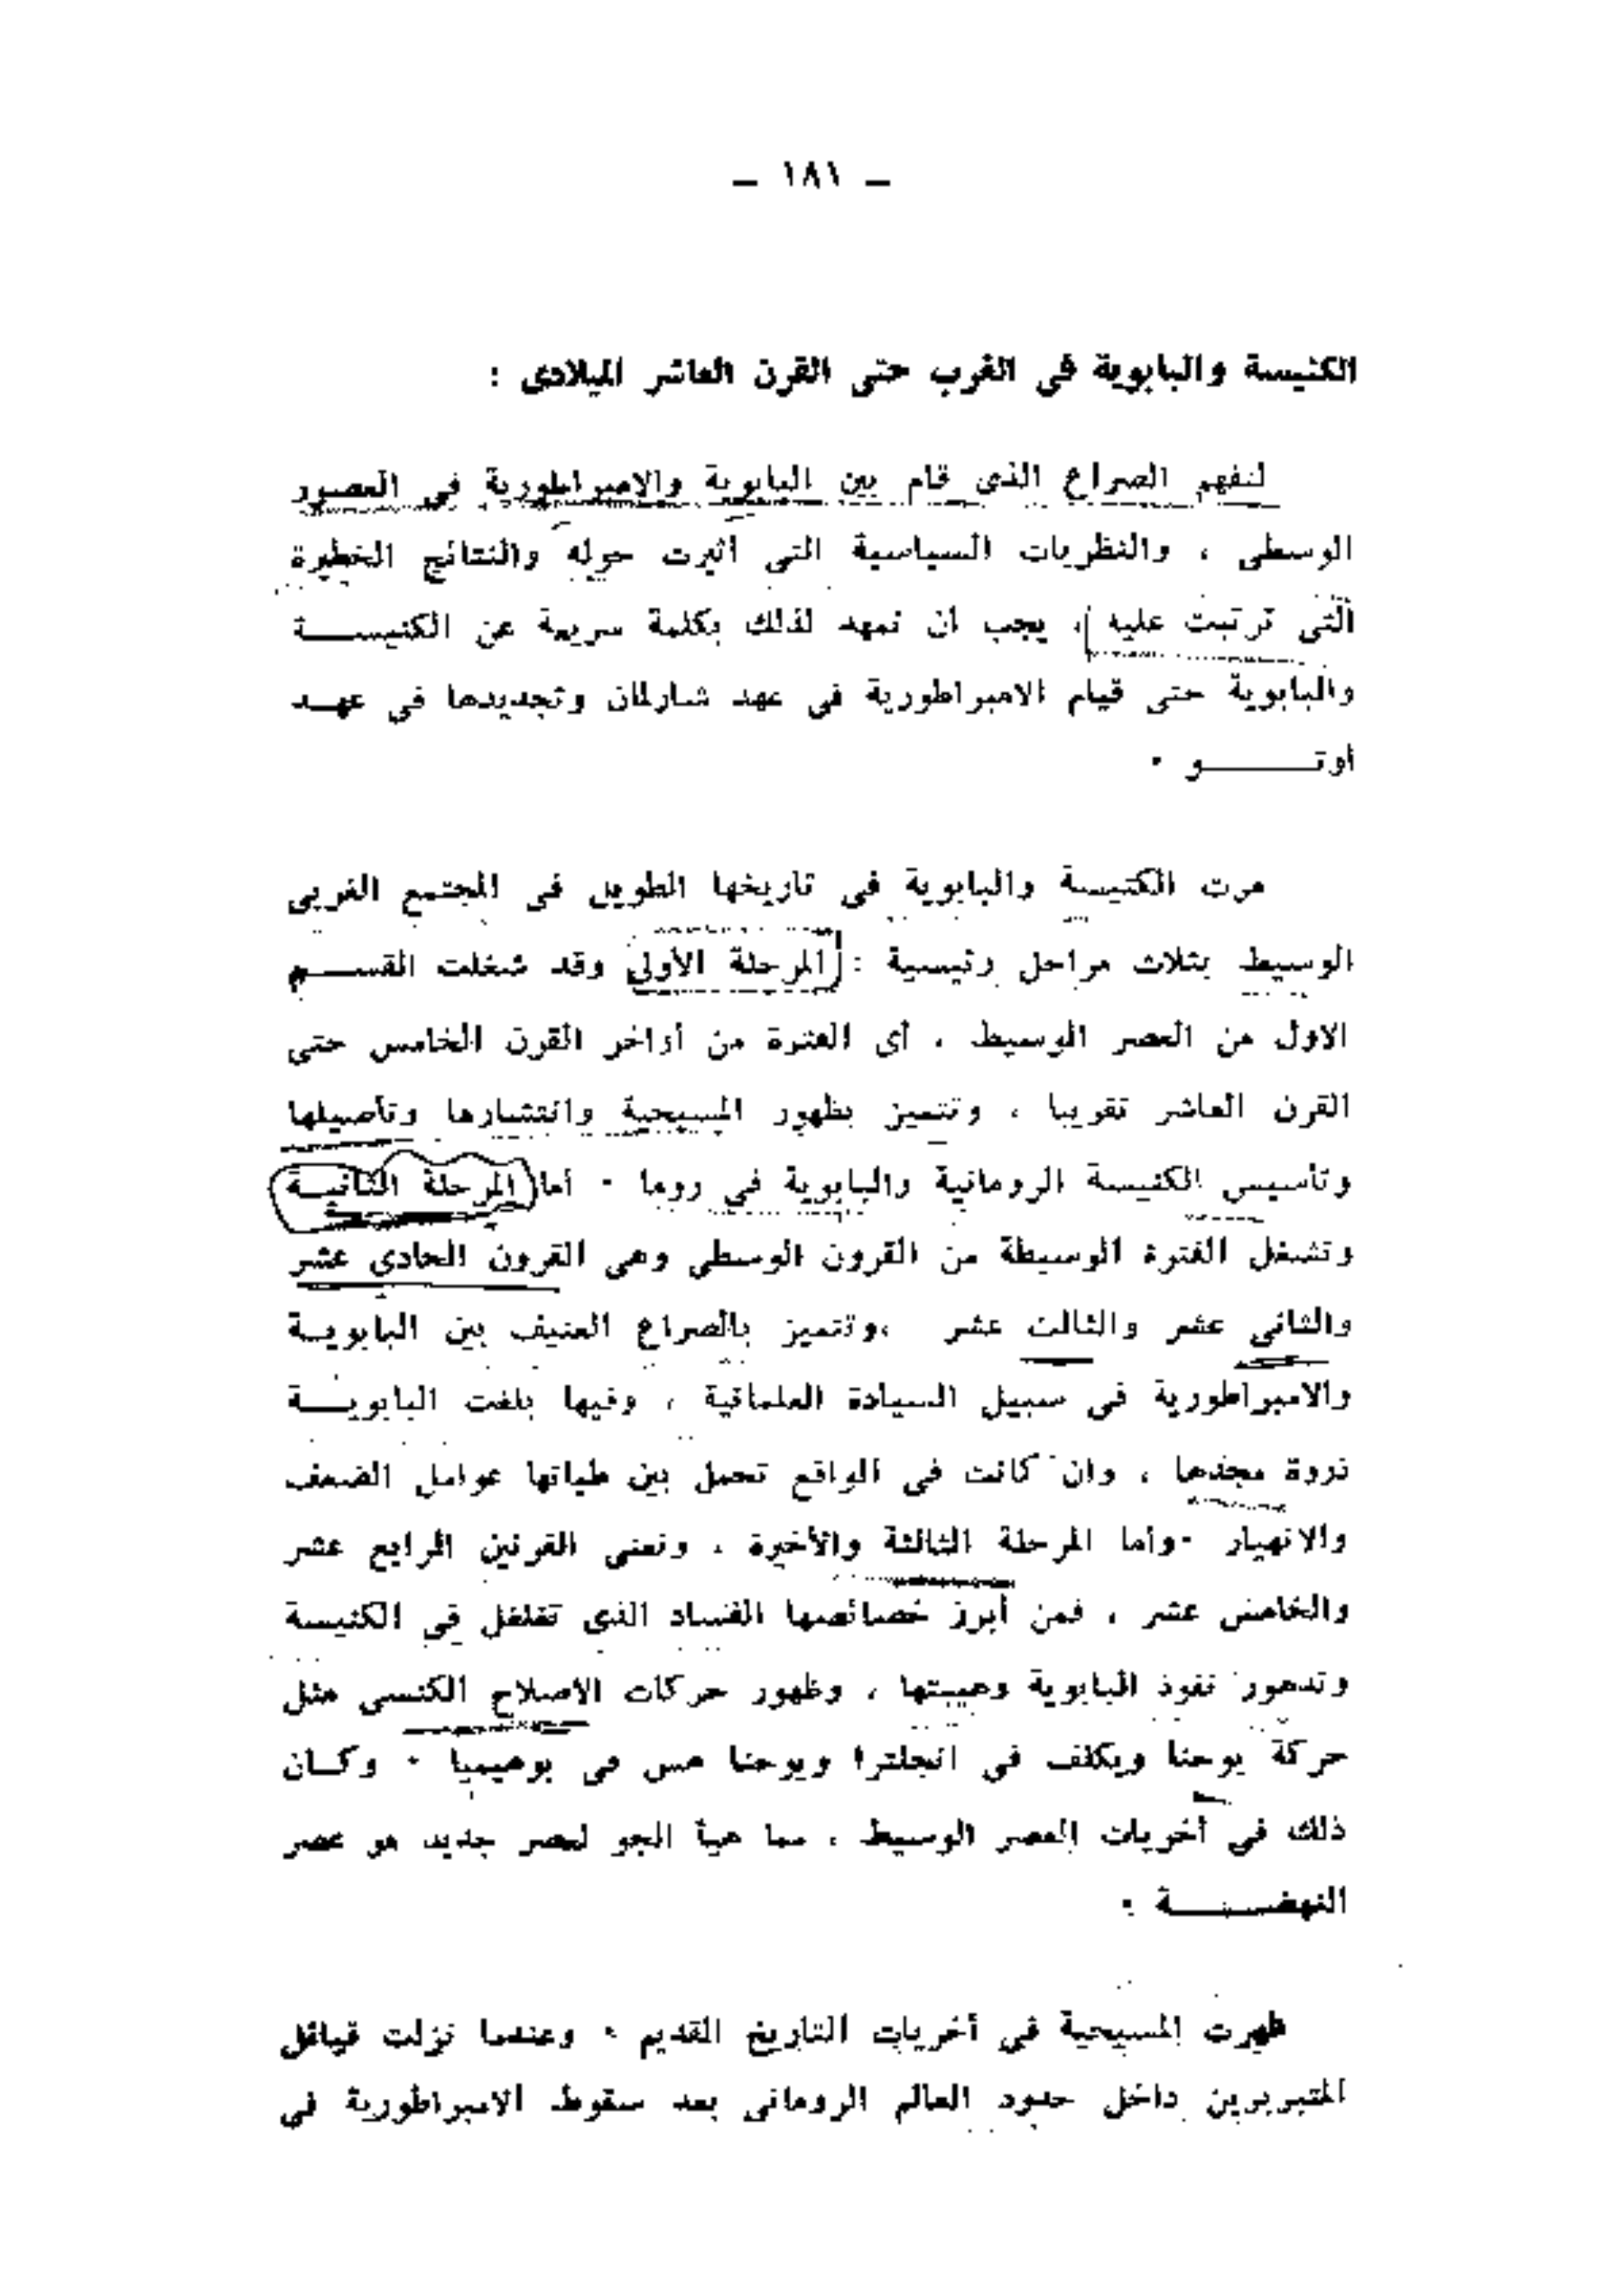 – ١٨١ –
الكنيسة والبابوية فى الغرب حتى القرن العاشر الميلادى :
لنفهم الصراع الذى قام بين البابوية والامبراطورية فى العصور
الوسطى ، والنظريات السياسية التى أثيرت حوله والنتائج الخطيرة
التى ترتبت عليه ، يجب أن نمهد لذلك بكلمة سريعة عن الكنيسة
والبابوية حتى قيام الامبراطورية فى عهد شارلمان وتجديدها فى عهد
أوتو ٠
مرت الكنيسة والبابوية فى تاريخها الطويل فى المجتمع الغربى
الوسيط بثلاث مراحل رئيسية : المرحلة الأولى وقد شغلت القسم
الاول من العصر الوسيط ، أى الفترة من أواخر القرن الخامس حتى
القرن العاشر تقريبا ، وتتميز بظهور المسيحية وانتشارها وتأصيلها
وتأسيس الكنيسة الرومانية والبابوية فى روما ٠ أما المرحلة الثانية
وتشغل الفترة الوسيطة من القرون الوسطى وهى القرون الحادى عشر
والثانى عشر والثالث عشر ،وتتميز بالصراع العنيف بين البابوية
والامبراطورية فى سبيل السيادة العلمانية ، وفيها بلغت البابوية
ذروة مجدها ، وان كانت فى الواقع تحمل بين طياتها عوامل الضعف
والانهيار ٠وأما المرحلة الثالثة والأخيرة ، وتعنى القرنين الرابع عشر
والخامس عشر ، فمن أبرز خصائصها الفساد الذى تغلغل فى الكنيسة
وتدهور نفوذ البابوية وهيبتها ، وظهور حركات الاصلاح الكنسى مثل
حركة يوحنا ويكلف فى انجلترا ويوحنا هس فى بوهيميا ٠ وكان
ذلك فى أخريات العصر الوسيط ، مما هيأ الجو لعصر جديد هو عصر
النهضة ٠
ظهرت المسيحية فى أخريات التاريخ القديم ٠ وعندما نزلت قبائل
المتبربرين داخل حدود العالم الرومانى بعد سقوط الامبراطورية فى